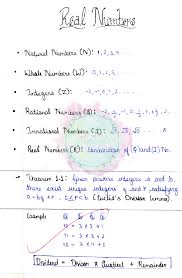 Real Numbers
• Natural Numbers (N): 1, 2, 3, 4 ...
• Whole Numbers (W): 0, 1, 2, 3 ...
• Integers (Z): -2, -1, 0, 1, 2 ...
• Rational Numbers (Q):
• Irrational Numbers (I): √2, √3, √5 ...
• Real Numbers (R): Combination of Q and (I) No.
• Theorem 1.1: Given positive integers a and b,
there exist unique integers q and r satisfying
a = bq + r, 0 ≤ r < b (Euclid's Division lemma).
Example
Dividend = Divisor x Quotient + Remainder